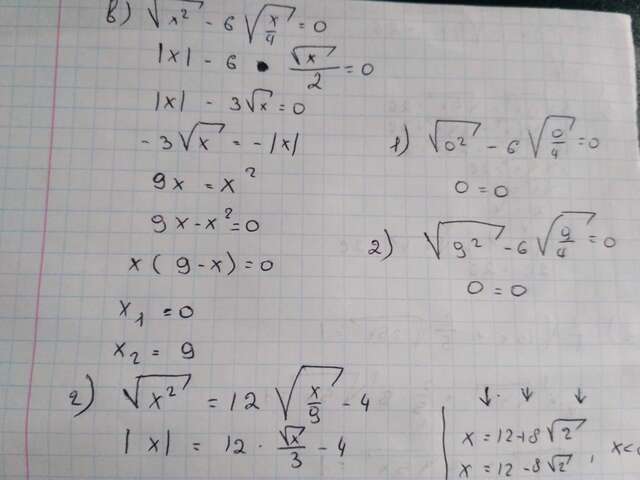 в) √x² - 6√(x/4) = 0
|x| - 6 • √x/2 = 0
|x| - 3√x = 0
-3√x = -|x|
9x = x²
9x - x² = 0
x(9 - x) = 0
x₁ = 0
x₂ = 9
1) √0² - 6√(0/4) = 0
0 = 0
2) √9² - 6√(9/4) = 0
0 = 0
г) √x² = 12√(x/9) - 4
|x| = 12 · √x/3 - 4
↓. ↓ ↓
x = 12+8√2
x = 12-8√2 , x<